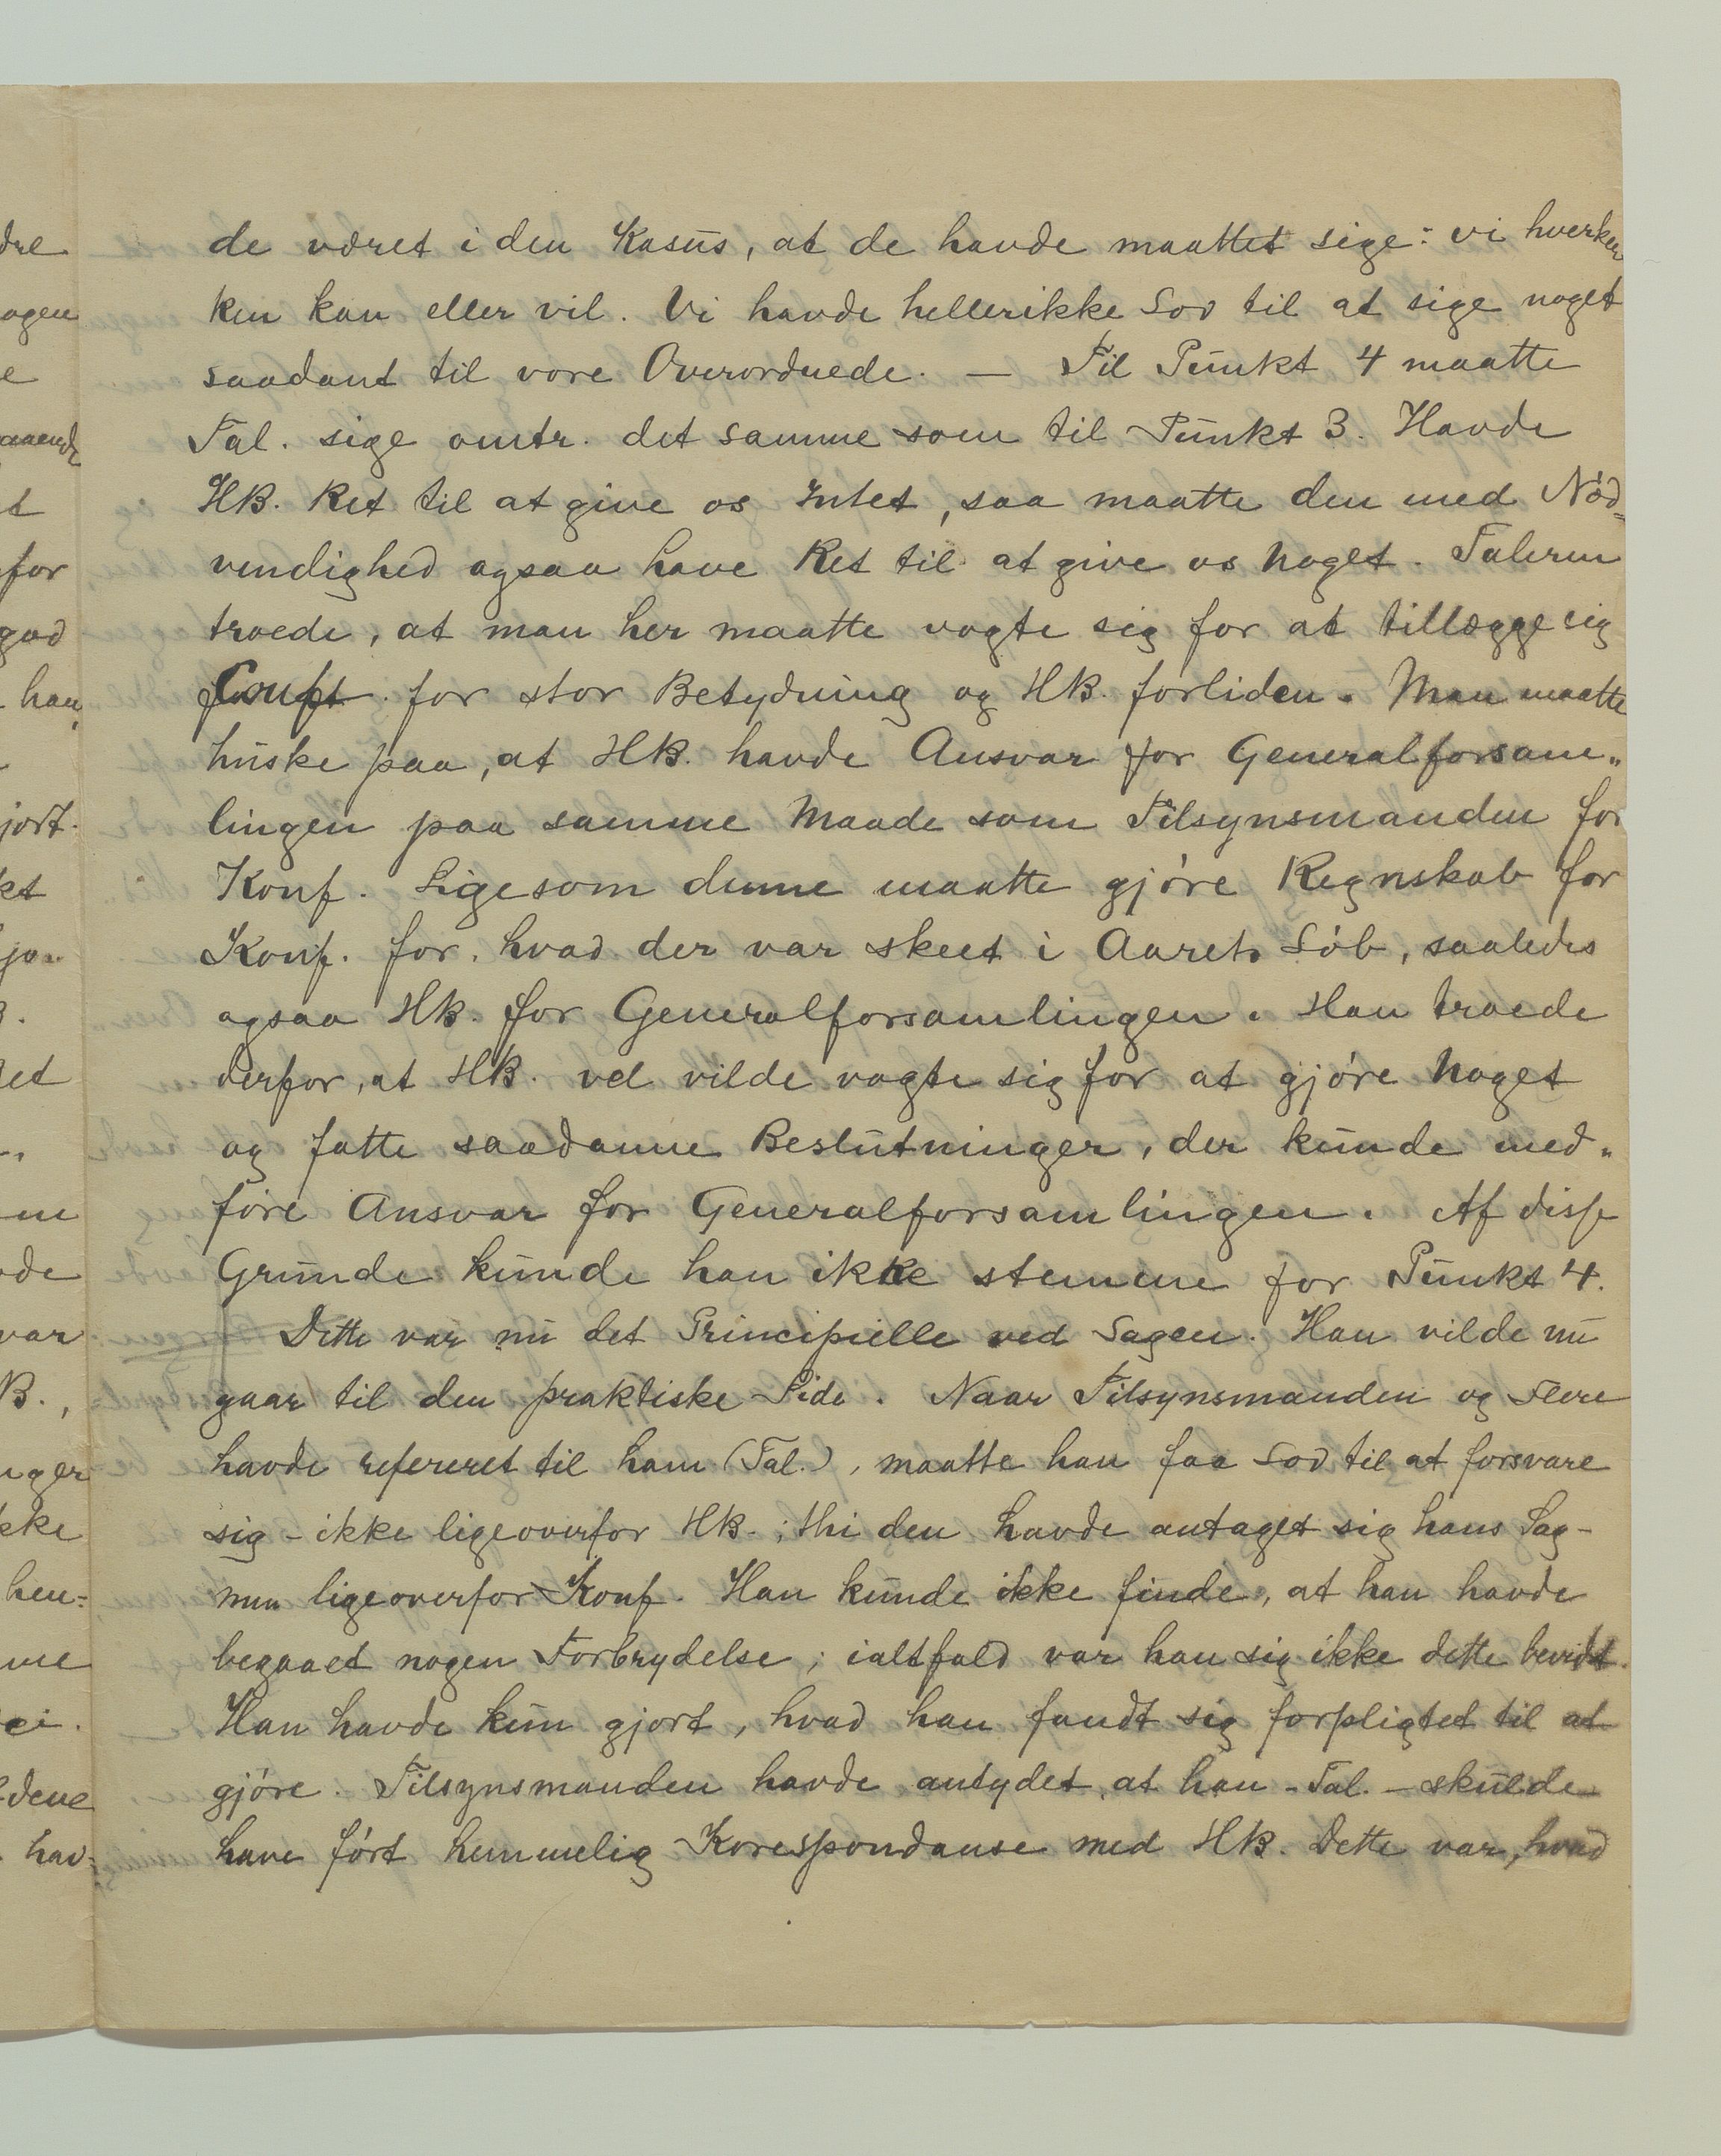 de været i den Kasus, at de havde maattet sige: vi hverken
ken kan eller vil. Vi havde hellerikke Lov til at sige noget
saadant til vore Overordnede. — Til Punkt 4 maatte
Tal. sige omtr. det samme som til Punkt 3. Havde
HB. Ret til at give os Intet, saa maatte den med Nød=
vendighed ogsaa have Ret til at give os Noget. Taleren
troede, at man her maatte vogte sig for at tillægge sig
for stor Betydning og HB. forliden. Man maatte
huske paa, at HB. havde Ansvar for Generalforsam„
lingen paa samme Maade som Tilsynsmanden for
Konf. Ligesom denne maatte gjøre Regnskab for
Konf. for hvad der var skeet i Aarets Løb, saaledes
ogsaa HB. for Generalforsamlingen. Han troede
derfor, at HB. vel vilde vogte sig for at gjøre Noget
og fatte saadanne Beslutninger, der kunde med„
føre Ansvar for Generalforsamlingen. Af disse
Grunde kunde han ikke stemme for Punkt 4.
Dette var nu det Principielle ved Sagen. Han vilde nu
gaar til den praktiske Side. Naar Tilsynsmanden og Flere
havde refereret til ham (Tal.), maatte han faa Lov til at forsvare
sig - ikke ligeoverfor HB.; thi den havde antaget sig hans Sag -
men ligeoverfor Konf. Han kunde ikke finde, at han havde
begaaet nogen Forbrydelse; ialtfald var han sig ikke dette bevidst.
Han havde kun gjort, hvad han fandt sig forpligtet til at
gjøre. Tilsynsmanden havde antydet, at han - Tal. - skulde
have ført hemmelig Korespondanse med HB. Dette var, hvad